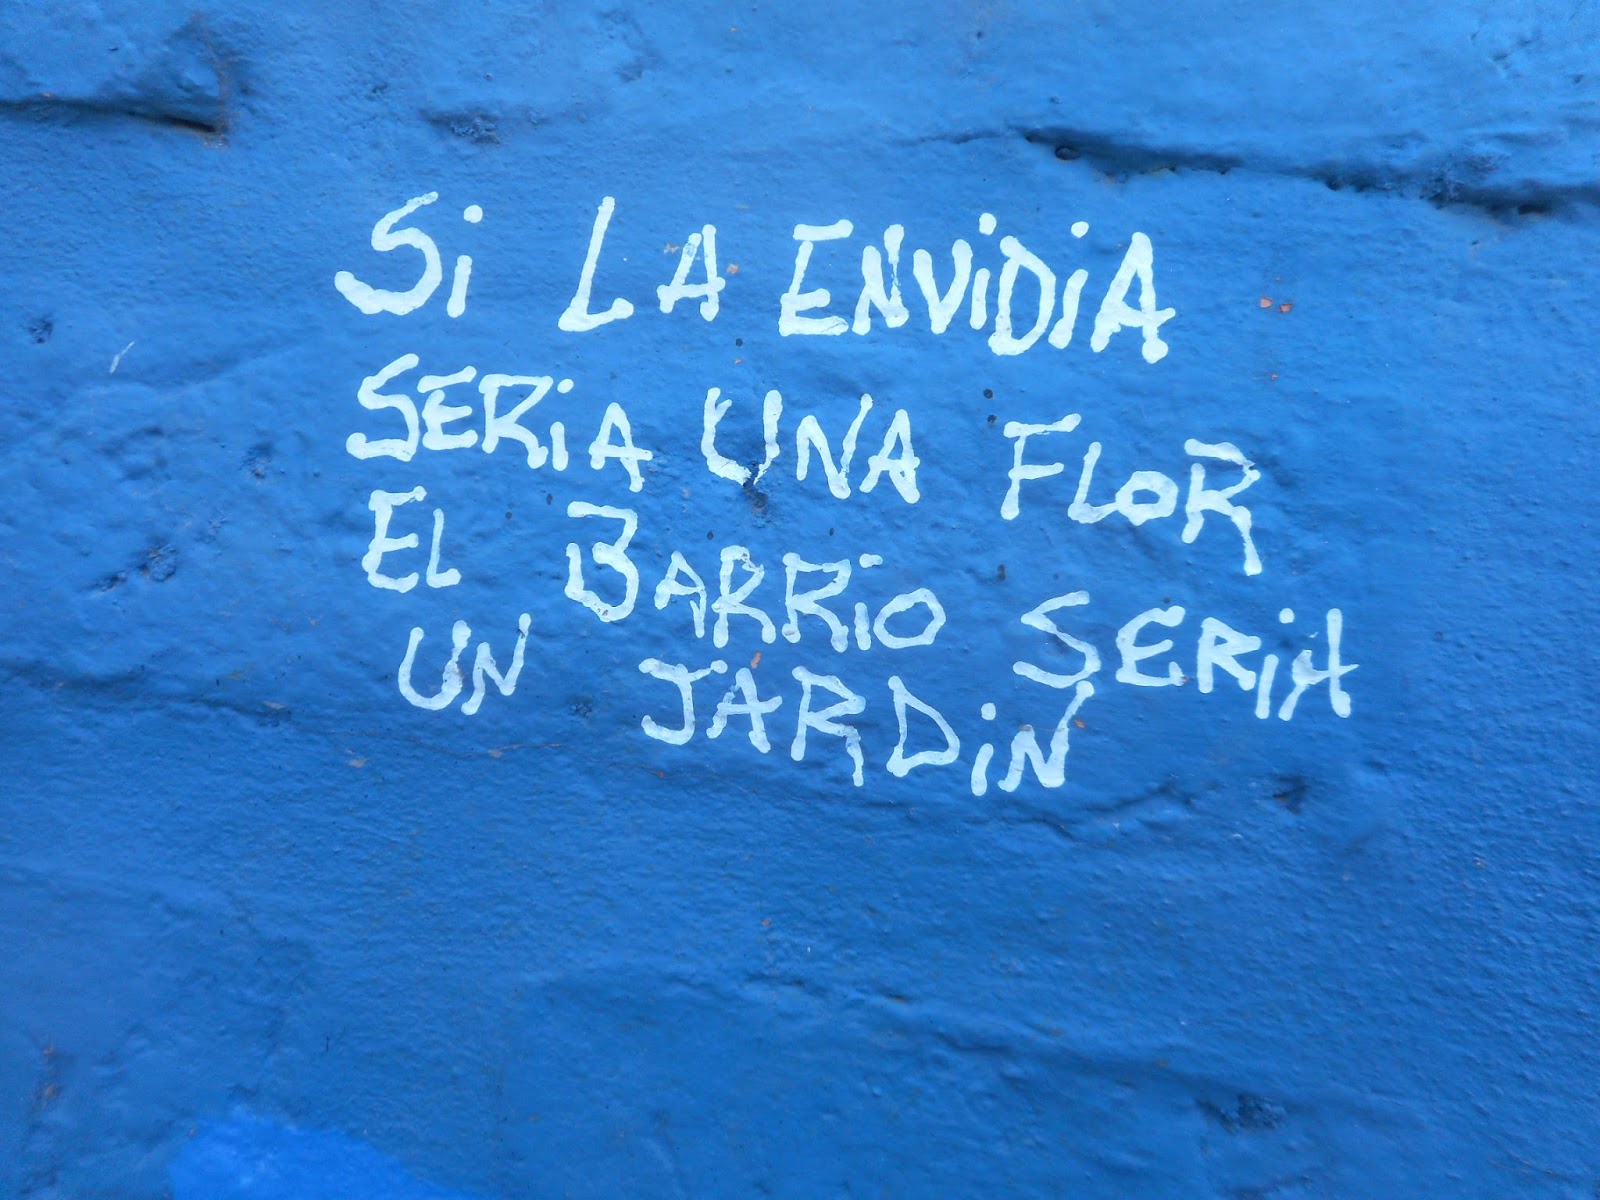 Si LA ENViDiA
SERiA UNA FLOR
EL BARRiO SERiA
UN JARDiN